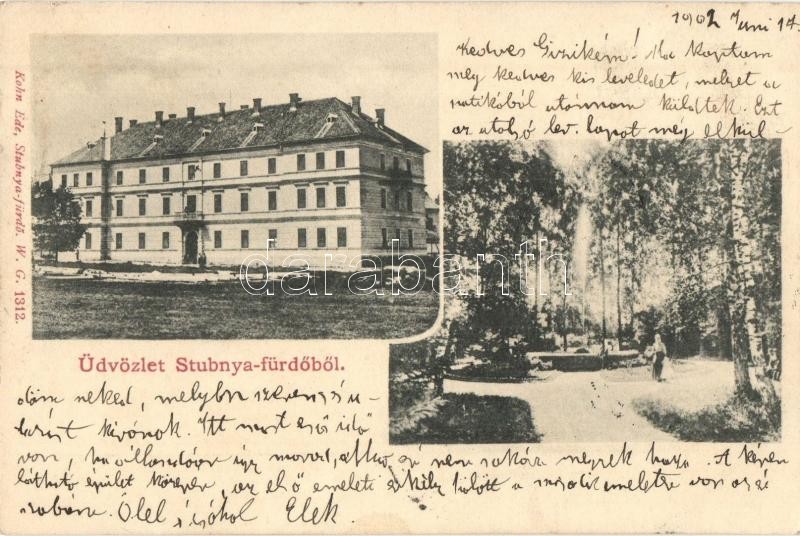 1902 Juni 14.
Kedves Gizikém! Ma kaptam
meg kedves kis leveledet, melyet a
patikából utánnam küldtek. Ezt
az utolsó lev. lapot még elkül-
Kohn Ede, Stubnya-fürdő. W. G. 1312.
darabanth.com
Üdvözlet Stubnya-fürdőből.
döm neked, melyben szerencsés u-
kívánok. Itt most eső idő
van, ha állandóan így marad, akkor én nem sokára megyek haza. A képen
látható épület közepén, az első emeleti erkély fölött a második emeleten van az én
szobám. Ölel s csókol Elek.